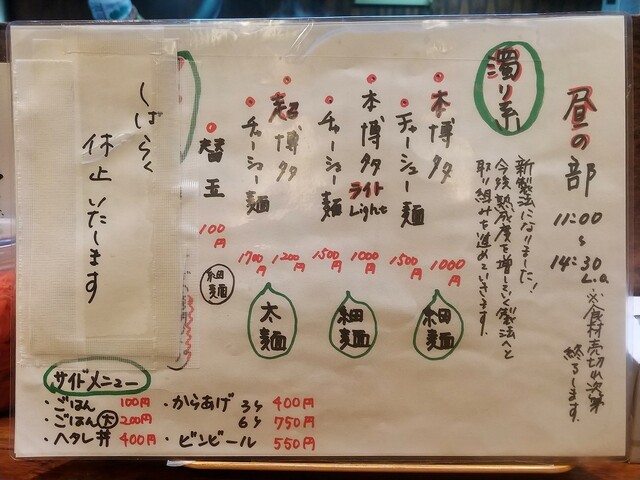 昼の部
11:00
～
14:30
L.O.
※食材売切れ次第
終了します。
濁り系
新製法になりました!
今後熟成度を増していく製法へと
取り組みを進めていきます。
・本博多
1000円
・チャーシュー麺
1500円
細麺
・本博多ライト
Light
1000円
・チャーシュー麺
1500円
細麺
・超博多
1200円
・チャーシュー麺
1700円
太麺
・替玉
100円
細麺
しばらく
休止いたします
サイドメニュー
・ごはん 100円
・ごはん大 200円
・ヘタレ丼 400円
・からあげ 3ケ 400円
6ケ 750円
・ビンビール 550円